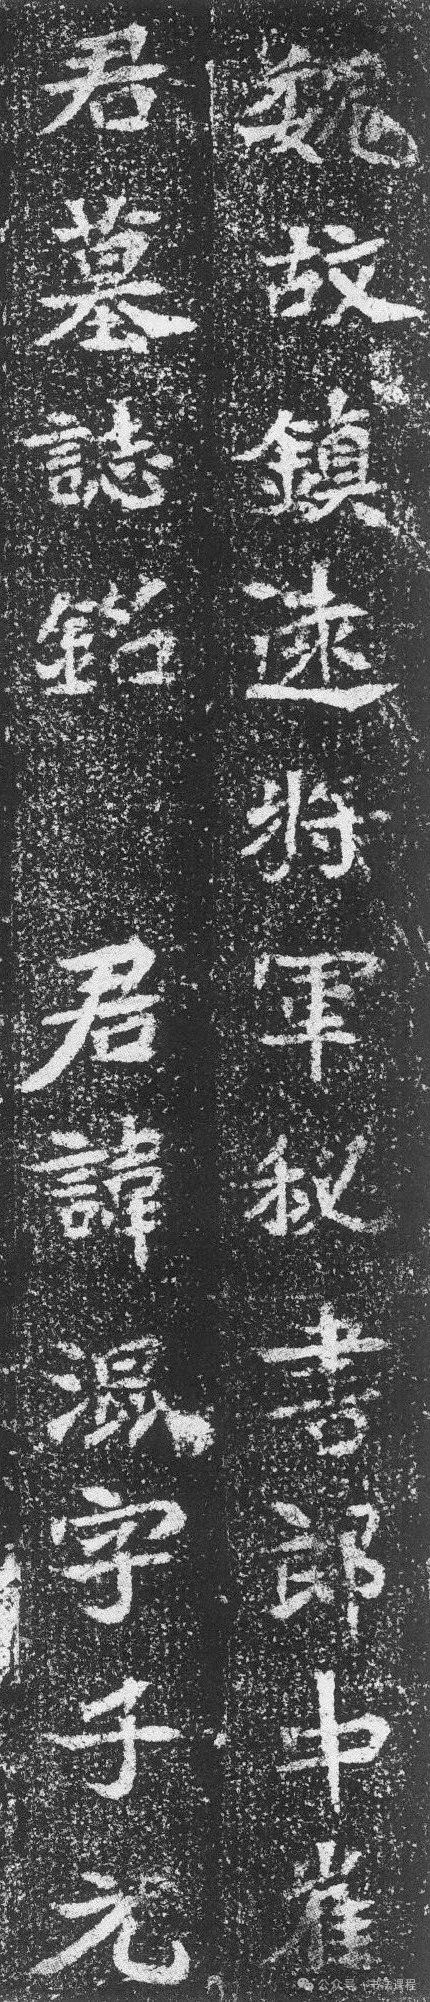 魏故鎮遠將軍秘書郎中崔
君墓誌銘 君諱混字子元
公众号·书法课程